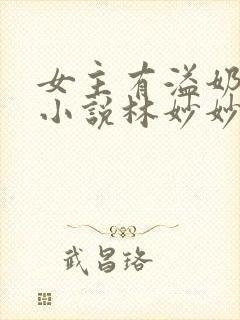 女主有溢奶
小说林妙妙
武昌珞